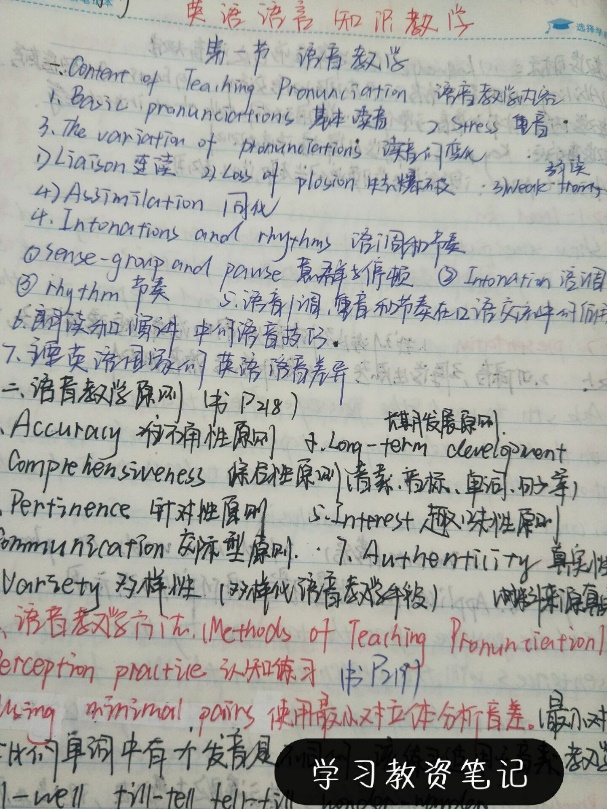 英语语言知识教学
选择
第一节 语音教学
一.Content of Teaching Pronunciation 语音教学内容
1. Basic pronunciations 基本读音 2. Stress 重音
3. The variation of pronunciations 读音的变化
1) Liaison 连读 2) Loss of plosion 失去爆破 3) Weak 弱读
4) Assimilation 同化
4. Intonations and rhythms 语调和节奏
① Sense-group and pause 意群与停顿 ② Intonation 语调
③ rhythm 节奏 5. 语音,语调,重音和节奏在口语交际中的作用
6. 朗读和演讲中的语音技巧.
7. 主要英语国家的英语语音差异
二、语音教学原则 (书P218)
Accuracy 准确性原则 Long-term development 长期发展原则.
Comprehensiveness 综合性原则 (音素、音标、单词、句子等)
Pertinence 针对性原则 5. Interest 趣味性原则
ommunication 交际型原则. 7. Authenticity 真实性
Variety 多样性 (多样化语音教学手段) 来源真
、语音教学方法. (Methods of Teaching Pronunciation)
erception practice 认知练习 书P219
Using minimal pairs 使用最小对立体分析音差. (最小对
单词中有一个发音
well till-tell tell-till
学习教资笔记